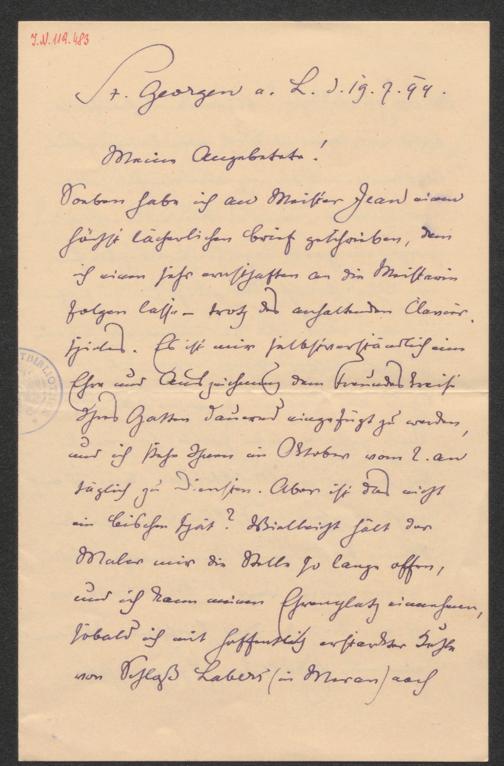 J.N. 119.483
St. Georgen a. L. d. 19. 7. 94.
Meine Angebetete!
Soeben habe ich an Meister Jean einen
höchst lächerlichen Brief geschrieben, dem
ich einen sehr ernsthaften an die Meisterin
folgen lasse – trotz des anhaltenden Clavier-
spieles. Es ist mir selbstverständlich eine
Ehre und Auszeichnung dem Freundeskreise
Ihres Gatten dauernd eingefügt zu werden,
und ich stehe Ihnen im Oktober vom 2. an
täglich zu Diensten. Aber ist das nicht
ein bischen spät? Vielleicht hält der
Maler mir die Stelle so lange offen,
und ich kann meinen Ehrenplatz einnehmen,
sobald ich mit hoffentlich erstarkter
von Schloß Labers (in Meran) nach